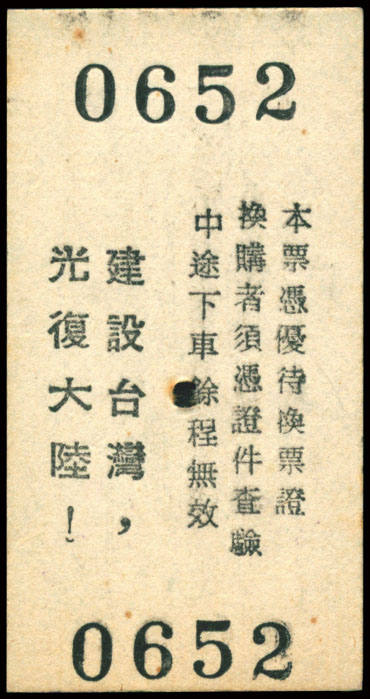 0652
本票憑優待換票證
換購者須憑證件查驗
中途下車餘程無效
建設台灣，
光復大陸！
0652